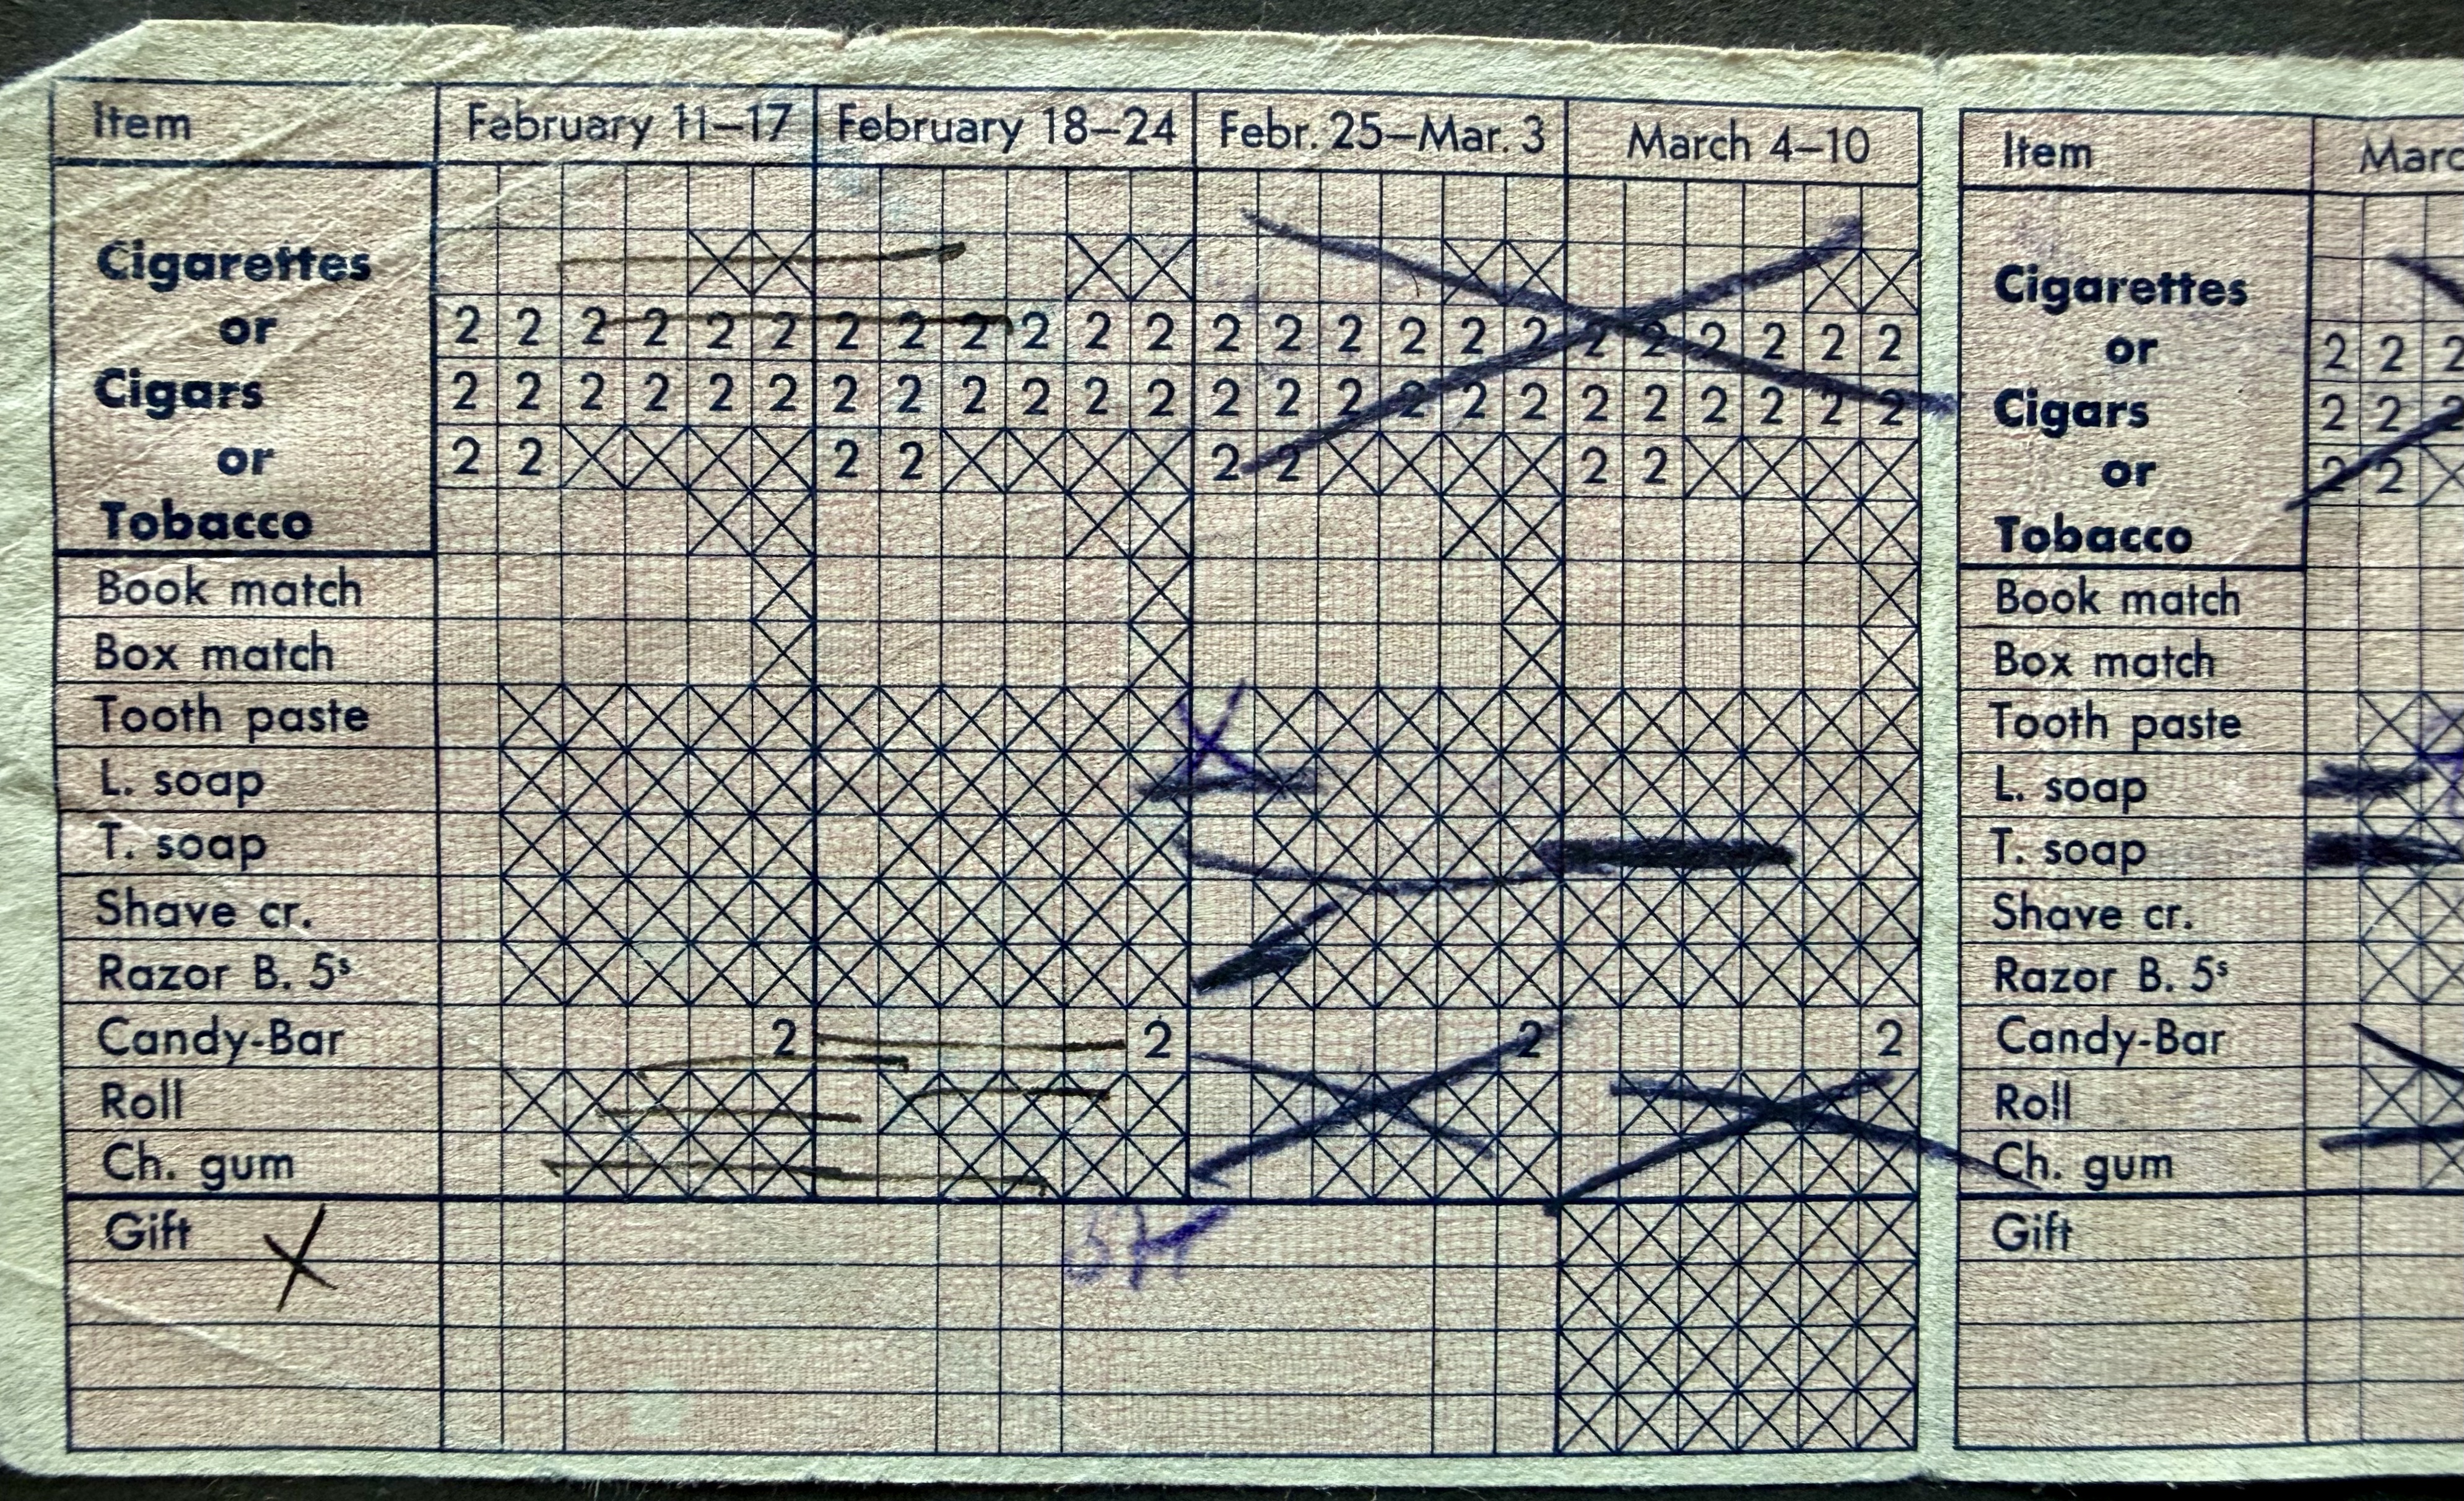 Item February 11–17 February 18–24 Febr. 25–Mar. 3 March 4–10
Cigarettes
or 2 2 2 2 2 2 2 2 2 2 2 2 2 2 2 2 2 2 2 2 2 2 2 2
Cigars 2 2 2 2 2 2 2 2 2 2 2 2 2 2 2 2 2 2 2 2 2 2 2 2
or 2 2 2 2 2 2 2 2
Tobacco
Book match
Box match
Tooth paste
L. soap
T. soap
Shave cr.
Razor B. 5s
Candy-Bar 2 2 2 2
Roll
Ch. gum
Gift X
Item Marc
Cigarettes
or 2 2 2
Cigars 2 2 2
or 2 2
Tobacco
Book match
Box match
Tooth paste
L. soap
T. soap
Shave cr.
Razor B. 5s
Candy-Bar
Roll
Ch. gum
Gift